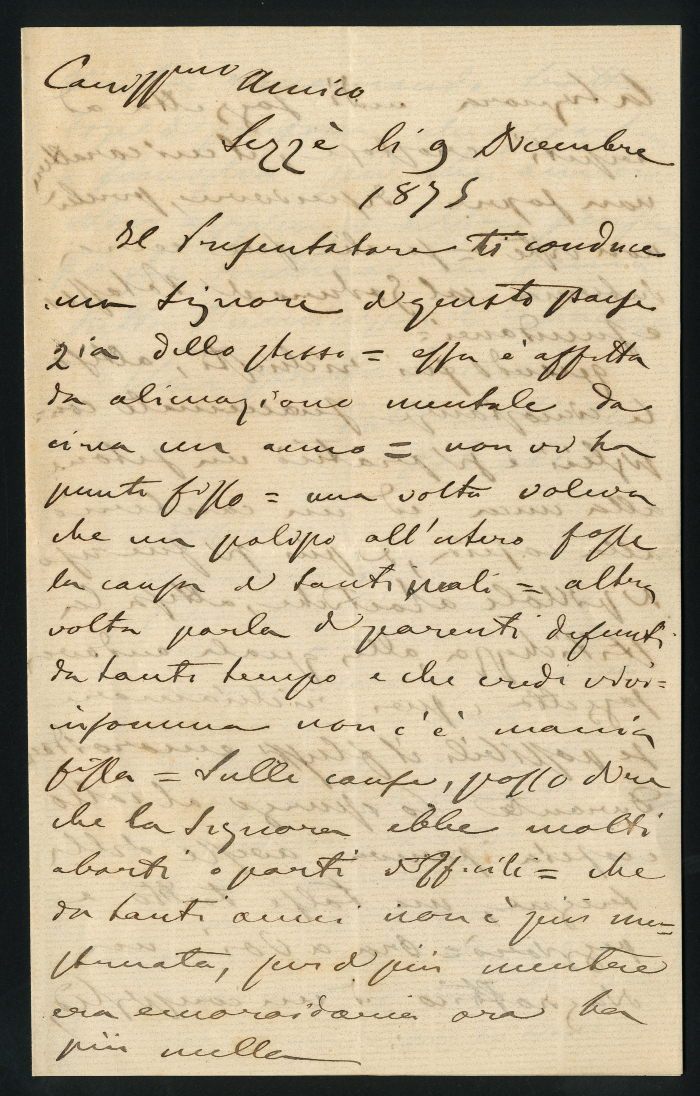 Cariss.mo Amico
Sezzè li 9 Dicembre
1875
Il Presentatore ti conduce
una Signora di questo paese
zia dello stesso = essa è affetta
da alienazione mentale da
circa un anno = non vi ha
punto fisso = una volta voleva
che un polipo all'utero fosse
la causa di tanti mali = altra
volta parla di parenti defunti
da tanto tempo e che crede vivi =
insomma non c'è mania
fissa = Sulle cause, posso dire
che la Signora ebbe molti
aborti o parti difficili = che
da tanti anni non è più me=
struata, per di più mentre
era emoroidaria ora ha
più nulla